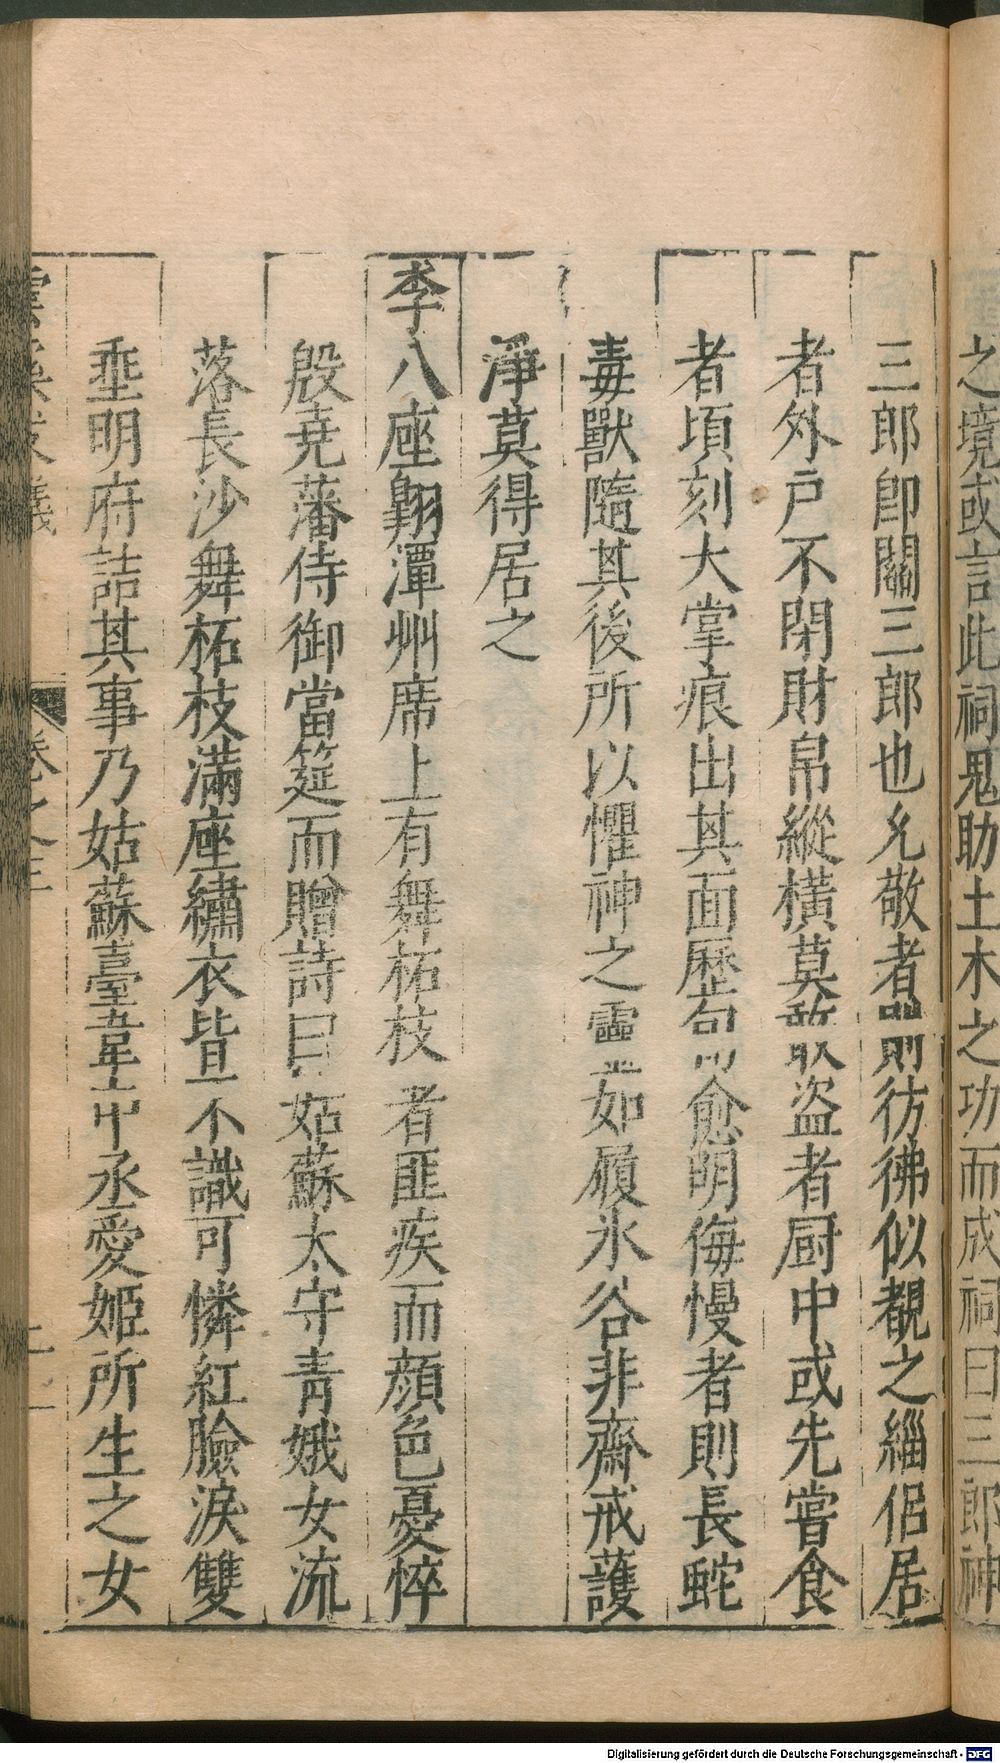 之境或言此祠鬼助土木之功而成祠曰三郎神
三郎卽關三郎也允敬者則彷彿似覩之緇侶居
者外戸不閉財帛縱橫莫敢盗者厨中或先嘗食
者頃刻大掌痕出其面歷旬愈明侮慢者則長蛇
毒獸隨其後所以懼神之靈如履氷谷非齋戒護
淨莫得居之
李八座翺潭州席上有舞柘枝者匪疾而顔色憂悴
殷尭藩侍御當筵而贈詩曰姑蘇太守青娥女流
落長沙舞柘枝滿座繡衣皆不識可憐紅臉淚雙
垂明府詰其事乃姑蘇臺韋中丞愛姬所生之女
雲溪友議 卷之上 二
Digitalisierung gefördert durch die Deutsche Forschungsgemeinschaft - DFG